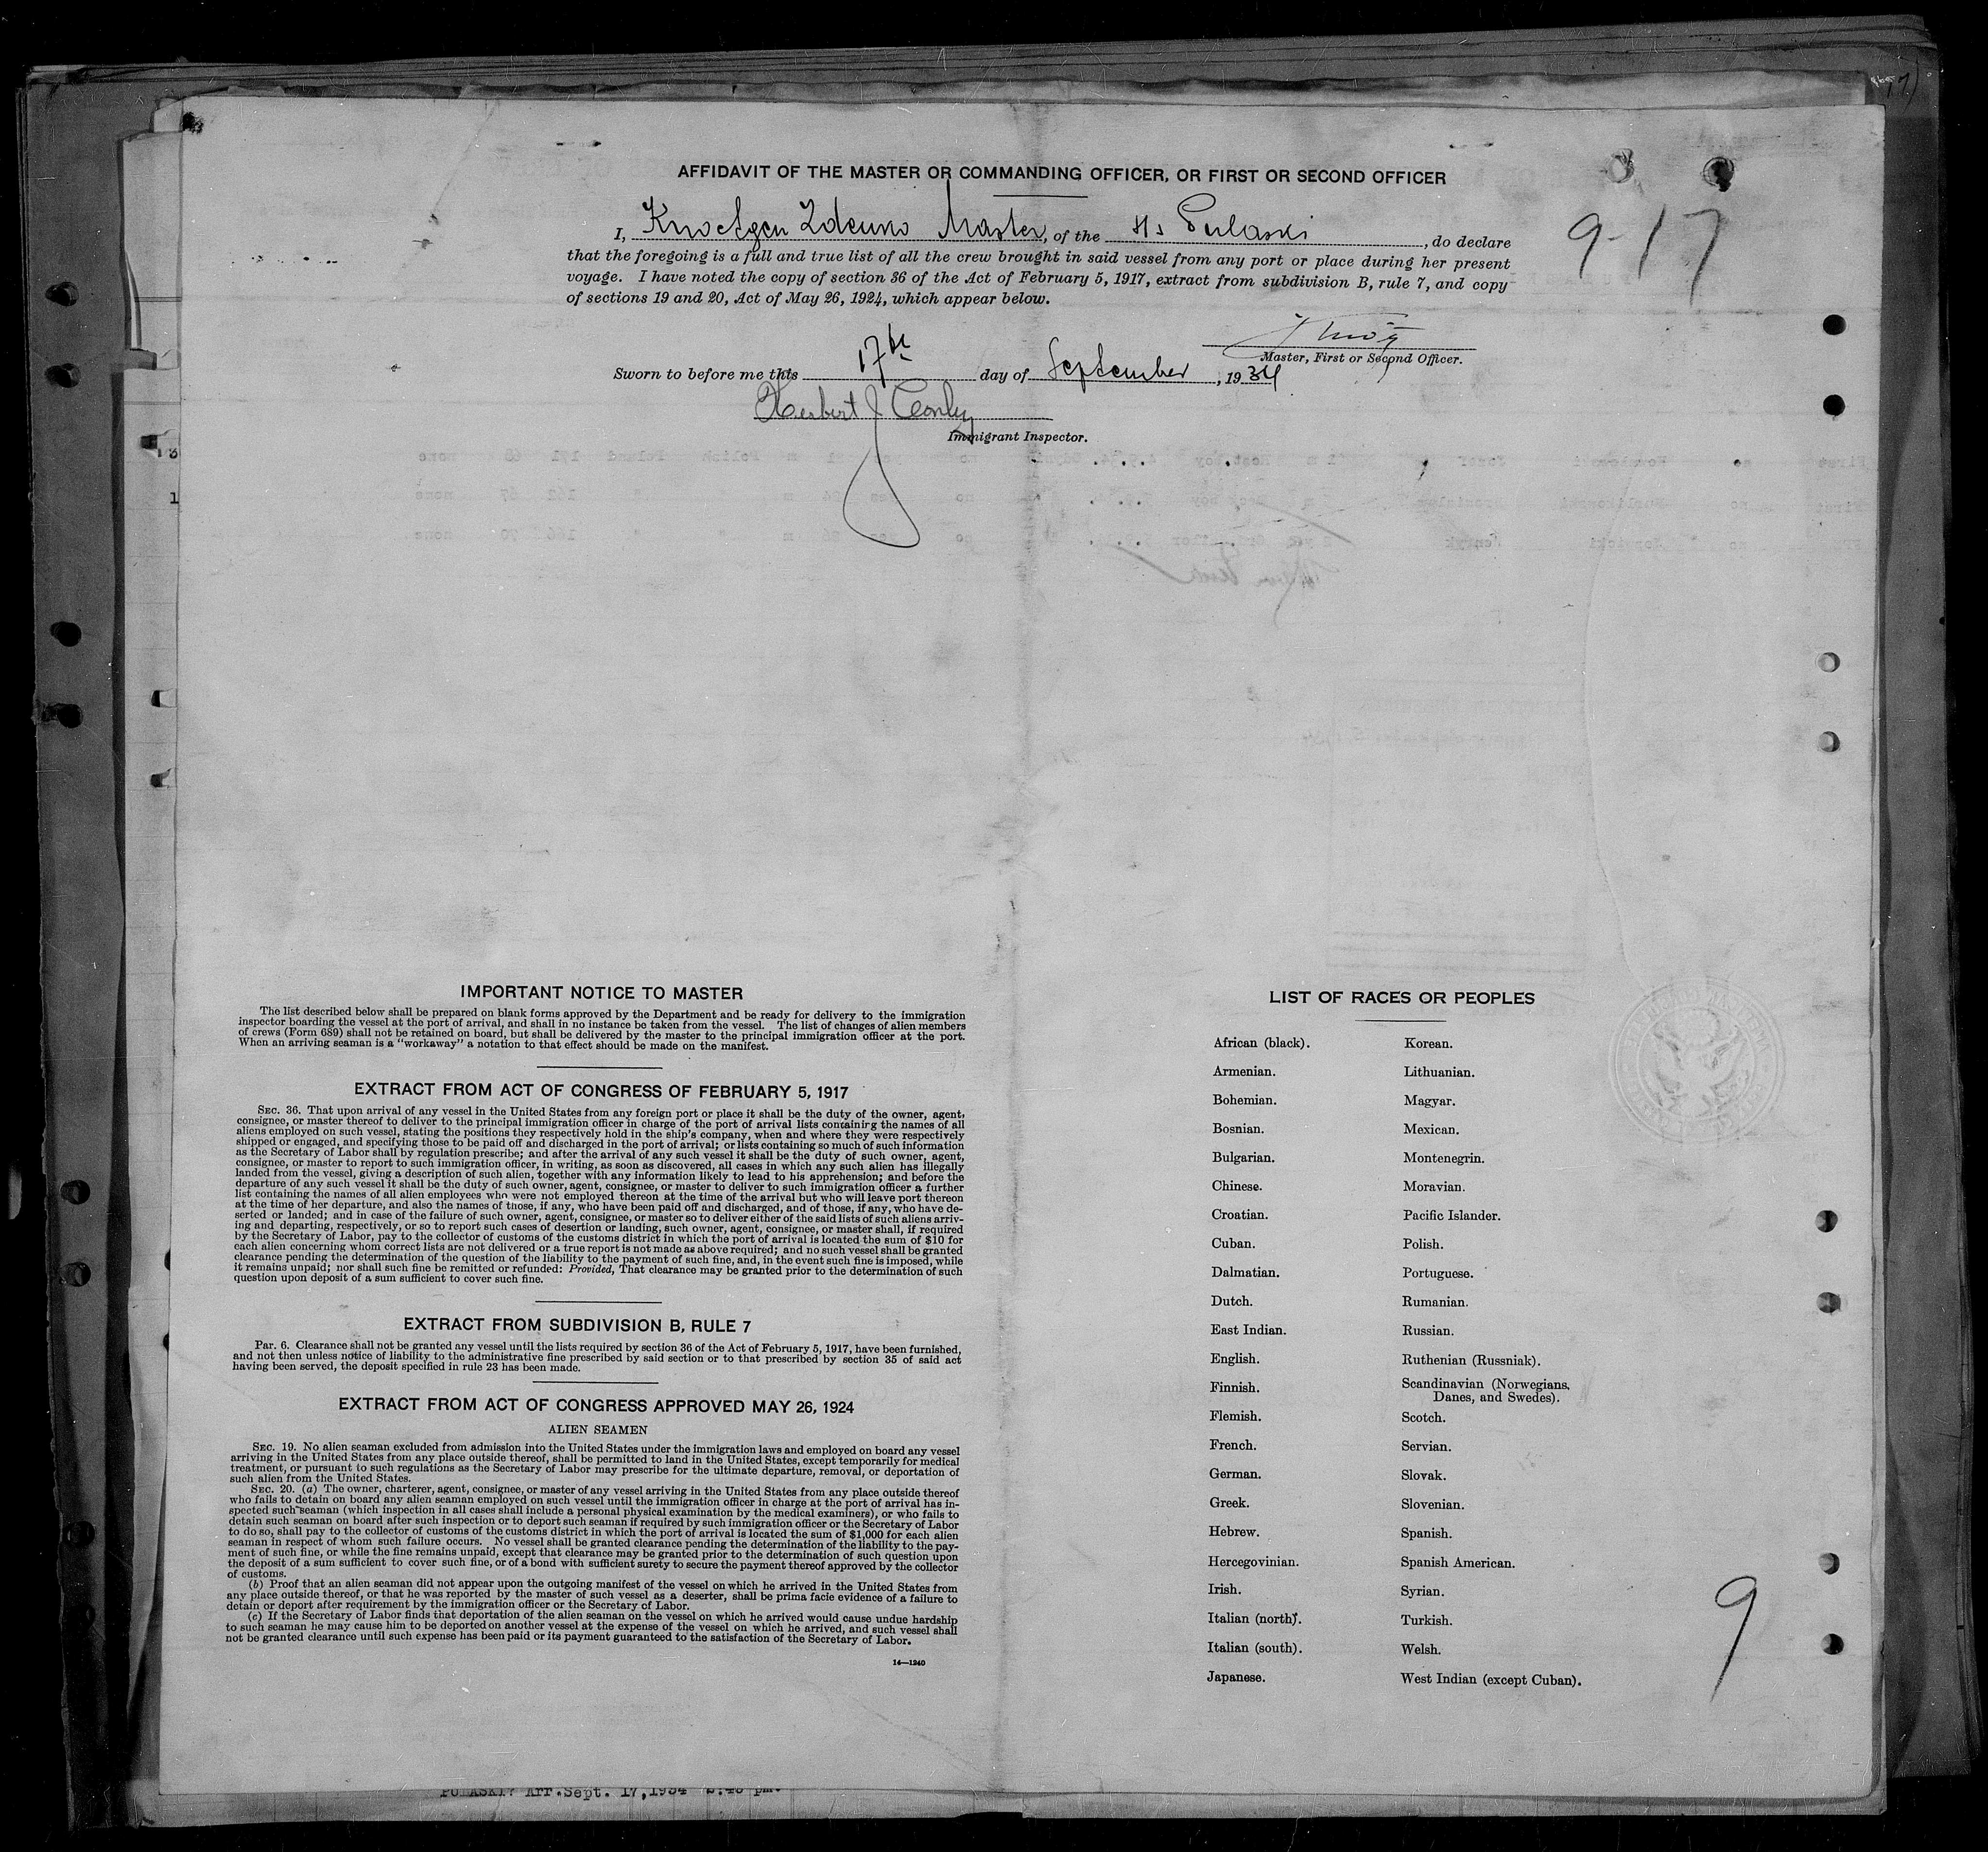 AFFIDAVIT OF THE MASTER OR COMMANDING OFFICER, OR FIRST OR SECOND OFFICER
9-17
I, Master, of the Pulaski, do declare
that the foregoing is a full and true list of all the crew brought in said vessel from any port or place during her present
voyage. I have noted the copy of section 36 of the Act of February 5, 1917, extract from subdivision B, rule 7, and copy
of sections 19 and 20, Act of May 26, 1924, which appear below.
Master, First or Second Officer.
Sworn to before me this 17th day of September, 1934
Herbert J Conly
Immigrant Inspector.
IMPORTANT NOTICE TO MASTER
The list described below shall be prepared on blank forms approved by the Department and be ready for delivery to the immigration
inspector boarding the vessel at the port of arrival, and shall in no instance be taken from the vessel. The list of changes of alien members
of crews (Form 689) shall not be retained on board, but shall be delivered by the master to the principal immigration officer at the port.
When an arriving seaman is a "workaway" a notation to that effect should be made on the manifest.
EXTRACT FROM ACT OF CONGRESS OF FEBRUARY 5, 1917
SEC. 36. That upon arrival of any vessel in the United States from any foreign port or place it shall be the duty of the owner, agent,
consignee, or master thereof to deliver to the principal immigration officer in charge of the port of arrival lists containing the names of all
aliens employed on such vessel, stating the positions they respectively hold in the ship's company, when and where they were respectively
shipped or engaged, and specifying those to be paid off and discharged in the port of arrival; or lists containing so much of such information
as the Secretary of Labor shall by regulation prescribe; and after the arrival of any such vessel it shall be the duty of such owner, agent,
consignee, or master to report to such immigration officer, in writing, as soon as discovered, all cases in which any such alien has illegally
landed from the vessel, giving a description of such alien, together with any information likely to lead to his apprehension; and before the
departure of any such vessel it shall be the duty of such owner, agent, consignee, or master to deliver to such immigration officer a further
list containing the names of all alien employees who were not employed thereon at the time of the arrival but who will leave port thereon
at the time of her departure, and also the names of those, if any, who have been paid off and discharged, and of those, if any, who have de-
serted or landed; and in case of the failure of such owner, agent, consignee, or master so to deliver either of the said lists of such aliens arriv-
ing and departing, respectively, or so to report such cases of desertion or landing, such owner, agent, consignee, or master shall, if required
by the Secretary of Labor, pay to the collector of customs of the customs district in which the port of arrival is located the sum of $10 for
each alien concerning whom correct lists are not delivered or a true report is not made as above required; and no such vessel shall be granted
clearance pending the determination of the question of the liability to the payment of such fine, and, in the event such fine is imposed, while
it remains unpaid; nor shall such fine be remitted or refunded: Provided, That clearance may be granted prior to the determination of such
question upon deposit of a sum sufficient to cover such fine.
EXTRACT FROM SUBDIVISION B, RULE 7
PAR. 6. Clearance shall not be granted any vessel until the lists required by section 36 of the Act of February 5, 1917, have been furnished,
and not then unless notice of liability to the administrative fine prescribed by said section or to that prescribed by section 35 of said act
having been served, the deposit specified in rule 23 has been made.
EXTRACT FROM ACT OF CONGRESS APPROVED MAY 26, 1924
ALIEN SEAMEN
SEC. 19. No alien seaman excluded from admission into the United States under the immigration laws and employed on board any vessel
arriving in the United States from any place outside thereof, shall be permitted to land in the United States, except temporarily for medical
treatment, or pursuant to such regulations as the Secretary of Labor may prescribe for the ultimate departure, removal, or deportation of
such alien from the United States.
SEC. 20. (a) The owner, charterer, agent, consignee, or master of any vessel arriving in the United States from any place outside thereof
who fails to detain on board any alien seaman employed on such vessel until the immigration officer in charge at the port of arrival has in-
spected such seaman (which inspection in all cases shall include a personal physical examination by the medical examiners), or who fails to
detain such seaman on board after such inspection or to deport such seaman if required by such immigration officer or the Secretary of Labor
to do so, shall pay to the collector of customs of the customs district in which the port of arrival is located the sum of $1,000 for each alien
seaman in respect of whom such failure occurs. No vessel shall be granted clearance pending the determination of the liability to the pay-
ment of such fine, or while the fine remains unpaid, except that clearance may be granted prior to the determination of such question upon
the deposit of a sum sufficient to cover such fine, or of a bond with sufficient surety to secure the payment thereof approved by the collector
of customs.
(b) Proof that an alien seaman did not appear upon the outgoing manifest of the vessel on which he arrived in the United States from
any place outside thereof, or that he was reported by the master of such vessel as a deserter, shall be prima facie evidence of a failure to
detain or deport after requirement by the immigration officer or the Secretary of Labor.
(c) If the Secretary of Labor finds that deportation of the alien seaman on the vessel on which he arrived would cause undue hardship
to such seaman he may cause him to be deported on another vessel at the expense of the vessel on which he arrived, and such vessel shall
not be granted clearance until such expense has been paid or its payment guaranteed to the satisfaction of the Secretary of Labor.
14—1240
LIST OF RACES OR PEOPLES
African (black). Korean.
Armenian. Lithuanian.
Bohemian. Magyar.
Bosnian. Mexican.
Bulgarian. Montenegrin.
Chinese. Moravian.
Croatian. Pacific Islander.
Cuban. Polish.
Dalmatian. Portuguese.
Dutch. Rumanian.
East Indian. Russian.
English. Ruthenian (Russniak).
Finnish. Scandinavian (Norwegians,
Danes, and Swedes).
Flemish. Scotch.
French. Servian.
German. Slovak.
Greek. Slovenian.
Hebrew. Spanish.
Hercegovinian. Spanish American.
Irish. Syrian.
Italian (north). Turkish.
Italian (south). Welsh.
Japanese. West Indian (except Cuban).
9
Arr.Sept. 17,1934